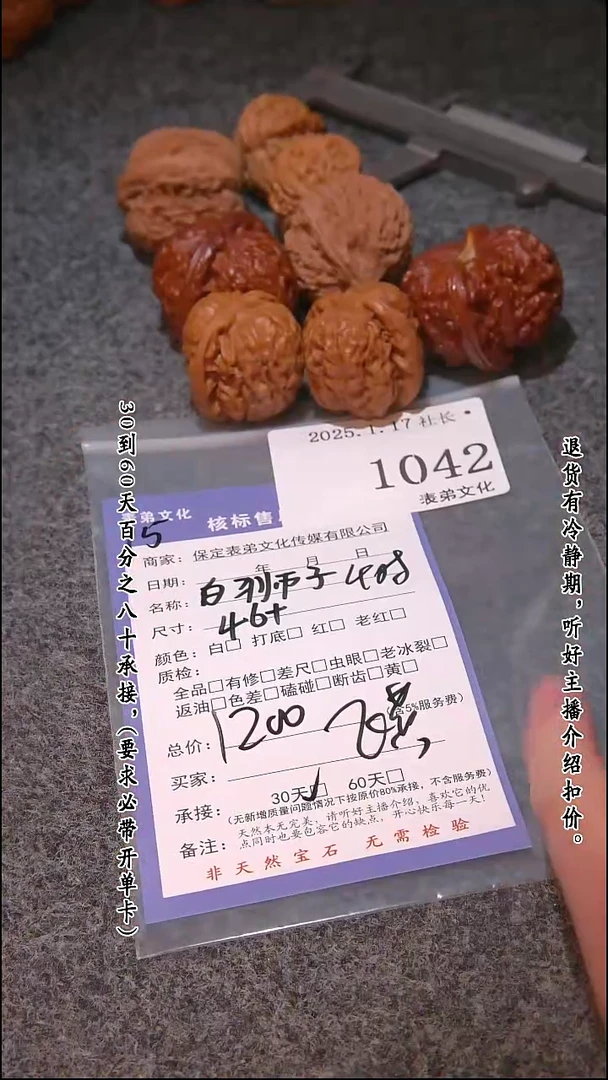 2025.1.17 社长
1042
表弟文化
表弟文化 核标售
5
商家：保定表弟文化传媒有限公司
日期： 年 月 日
名称：白狮子
尺寸：46+
颜色：白□ 打底□ 红□ 老红□
质检：
全品□有修□差尺□虫眼□老冰裂□
返油□色差□磕碰□断齿□黄□
总价：1200 (含5%服务费)
买家：
承接：30天☑ 60天□
(无新增质量问题情况下按原价80%承接，不含服务费)
备注：天然本无完美，请听好主播介绍，喜欢它的优
点同时也要包容它的缺点，开心快乐每一天！
非天然宝石 无需检验
30到60天百分之八十承接，(要求必带开单卡)
退货有冷静期，听好主播介绍扣价。